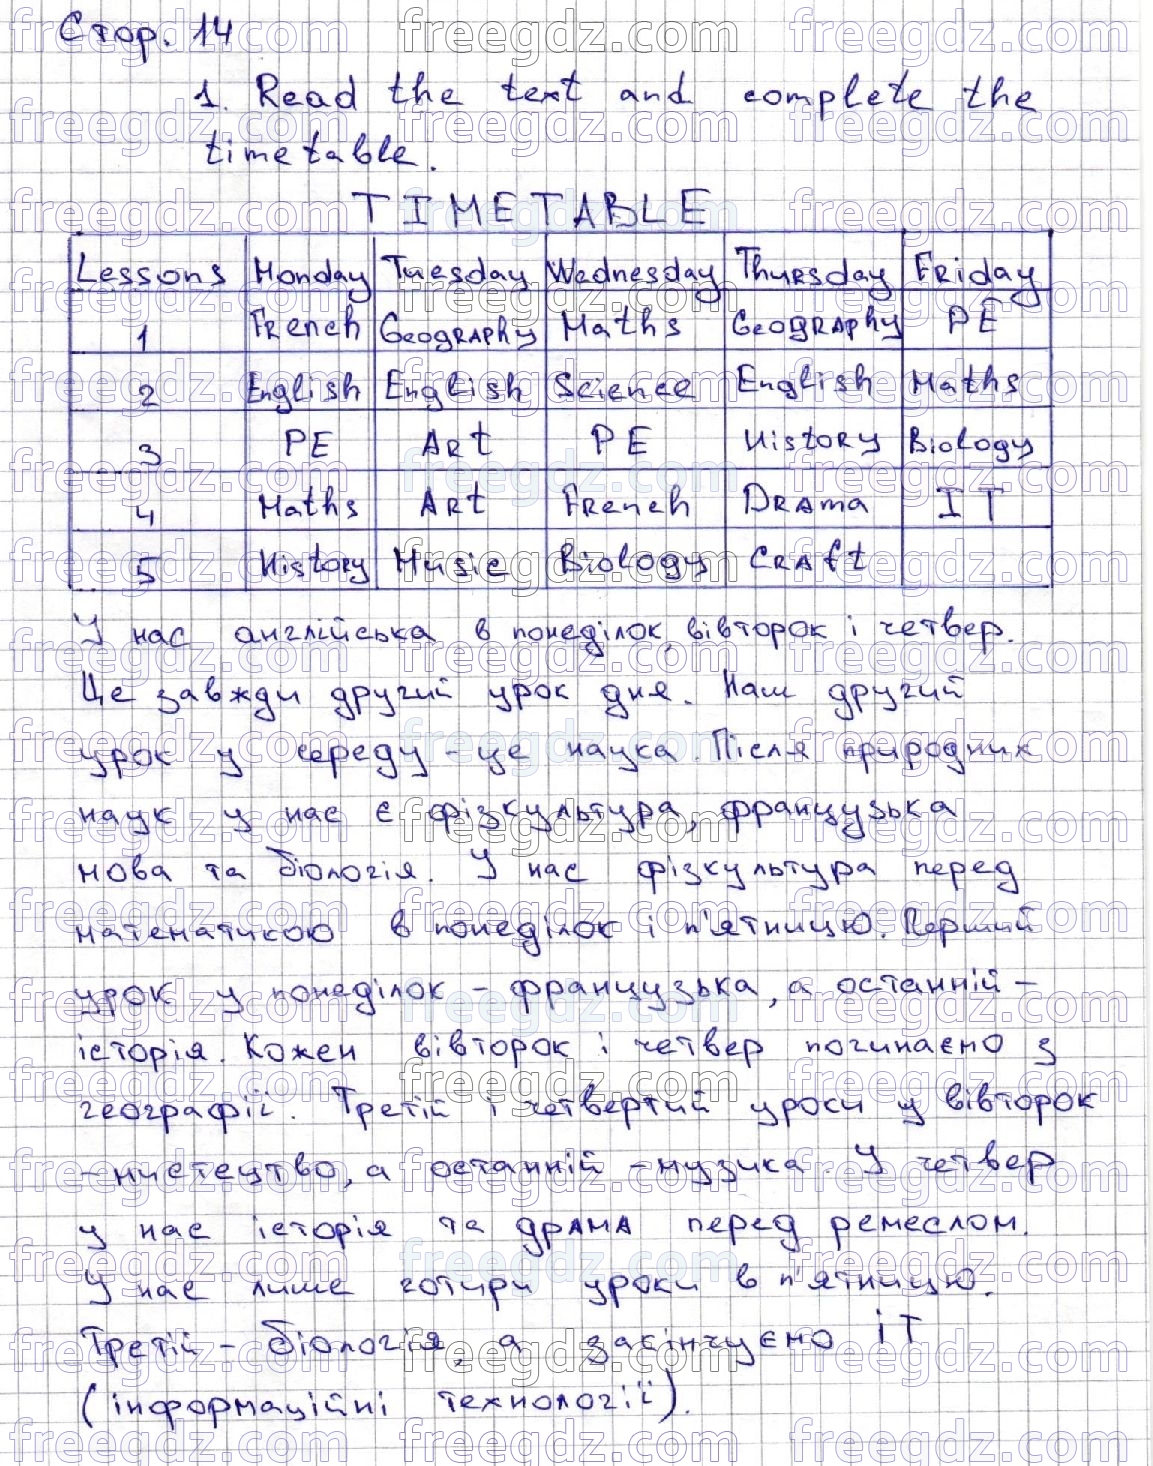 Стор. 14
1. Read the text and complete the
timetable.
TIMETABLE
Lessons Monday Tuesday Wednesday Thursday Friday
1 French Geography Maths Geography PE
2 English English Science English Maths
3 PE Art PE History Biology
4 Maths Art French Drama IT
5 History Music Biology Craft
У нас англійська в понеділок, вівторок і четвер.
Це завжди другий урок дня. Наш другий
урок у середу - це наука. Після природних
наук у нас є фізкультура, французька
мова та біологія. У нас фізкультура перед
математикою в понеділок і п'ятницю. Перший
урок у понеділок - французька, а останній -
історія. Кожен вівторок і четвер починаємо з
географії. Третій і четвертий уроки у вівторок
- мистецтво, а останній - музика. У четвер
у нас історія та драма перед ремеслом.
У нас лише чотири уроки в п'ятницю.
Третій - біологія, а закінчуємо ІТ
(інформаційні технології).
freegdz.com